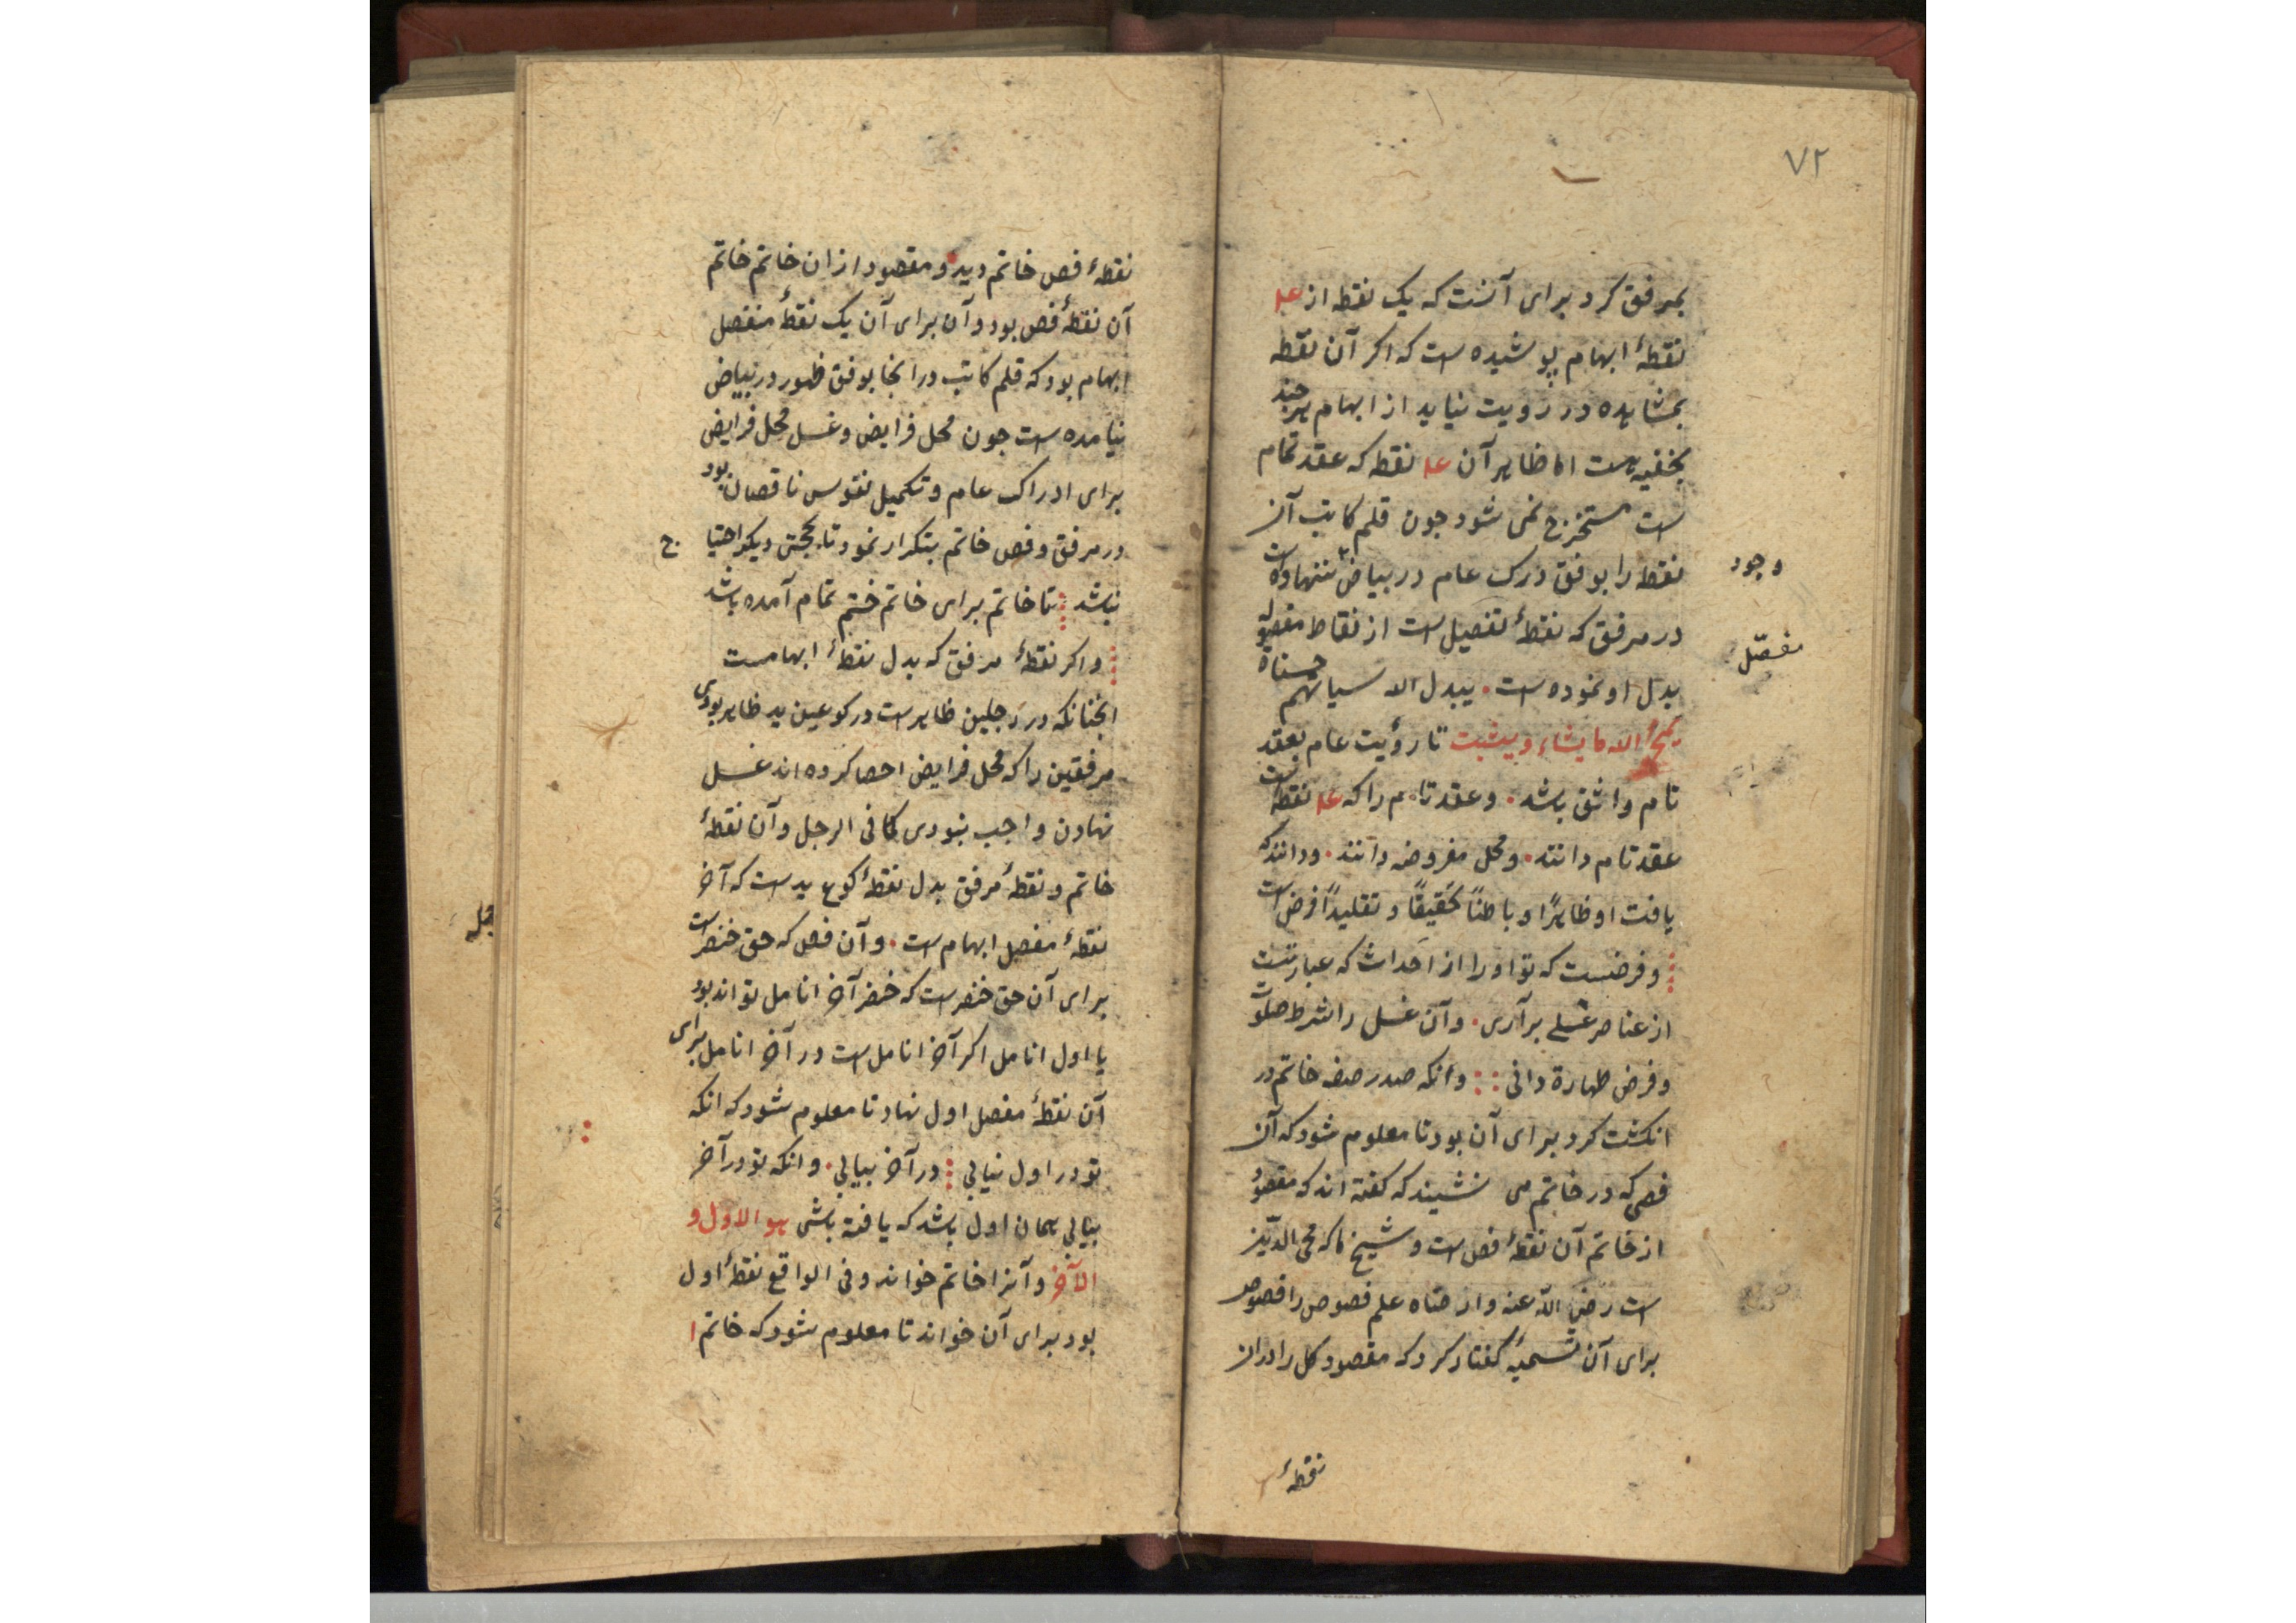 ٧٢
بمرفق کرد برای آنست که یک نقطه از
نقطهٔ ابهام پوشیده است که اکر آن نقطه
بمشاهده در رویت نیاید از ابهام هرچند
بخفیه است اما ظاهر آن نقطه که عقد تمام
است مستخرج نمی شود جون قلم کاتب آن
نقطه را بوفق درک عام در بیاض ننهاده است
وجود
در مرفق که نقطهٔ تفصیل است از نقاط مفصول
مفصّل
بدل او نموده است . یبدل الله سیاتهم حسناة
یمحُ الله ما یشاء ویثبت تا رؤیت عام بعقد
تام واثق باشد . وعقد تام را که نقطه است
عقد تام دانند . ومحل مفروضه دانند . ودانند که
یافت او ظاهرًا وباطنًا تحقیقًا وتقلیدًا فرض است
وفرضست که تو او را از احداث که عبارتست
از عناصر غسلی برآری . وآن غسل را شرط صلوت
وفرض طهارة دانی وانکه صدر صفه خاتم در
انکشت کرد برای آن بود تا معلوم شود که آن
فصی که در خاتم می نشیند که کفته اند که مقصود
از خاتم آن نقطهٔ فص است وشیخ ما که محی الدین
است رضی الله عنه وارضاه علم فصوص را فصوص
برای آن تسمیهٔ کفتار کرد که مقصود کل را در آن
نقطهٔ
نقطهٔ فص خاتم دید ومقصود از ان خاتم خاتم
آن نقطهٔ فص بود وآن برای آن یک نقطهٔ منفصل
ابهام بود که قلم کاتب در انجا بوفق ظهور در بیاض
نیامده است جون محل فرایض وغسل محل فرایض
برای ادراک عام وتکمیل نفوس ناقصان بود
در مرفق وفص خاتم بتکرار نمود تا بحجتی دیکر احتیا ج
نباشد تا خاتم برای خاتم ختم تمام آمده باشد
واکر نقطهٔ مرفق که بدل نقطهٔ ابهامست
انجنانکه در رجلین ظاهر است در کوعین ید ظاهر بودی
مرفقین را که محل فرایض احصا کرده اند غسل
نهادن واجب نبودی کما فی الرجل وآن نقطهٔ
خاتم ونقطهٔ مرفق بدل نقطهٔ کوع ید است که آخر
نقطهٔ مفصل ابهام است . وآن فص که حق خنصر است
برای آن حق خنصر است که خنصر آخر انامل تواند بود
یا اول انامل اکر آخر انامل است در آخر انامل برای
آن نقطهٔ مفصل اول نهاد تا معلوم شود که انکه
تو در اول نیابی در آخر بیابی . وانکه تو در آخر
بیابی همان اول باشد که یافته باشی هو الاول و
الآخر وآنرا خاتم خواند وفی الواقع نقطهٔ اول
بود برای آن خواند تا معلوم شود که خاتم ا